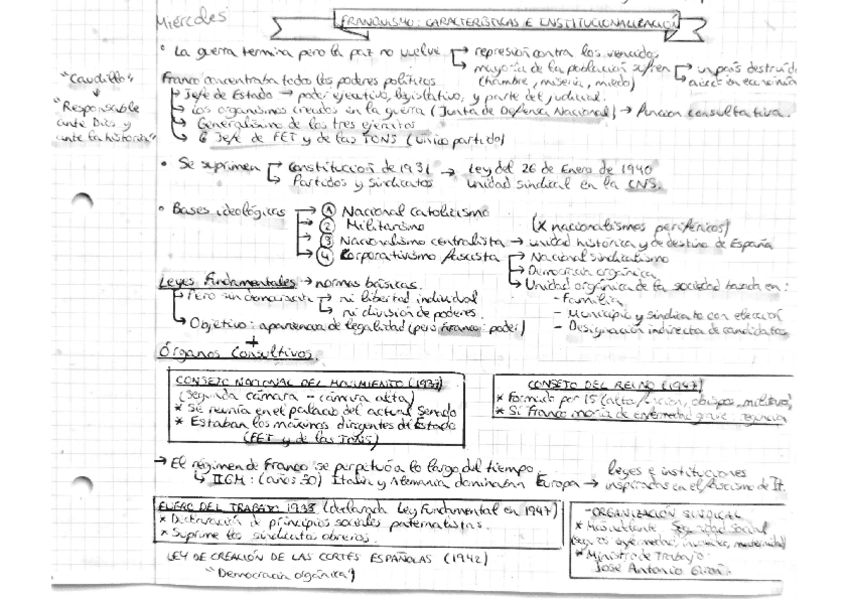 Miércoles
FRANQUISMO: CARACTERÍSTICAS E INSTITUCIONALIZACIÓN
• La guerra termina pero la paz no vuelve → represión contra los vencidos
→ mayoría de la población sufren → un país destruid
(hambre, miseria, miedo)
"Caudillo"
↓
"Responsable
ante Dios y
ante la historia"
Franco concentraba todos los poderes políticos
→ Jefe de Estado → poder ejecutivo, legislativo, y parte del judicial.
→ Los organismos creados en la guerra (Junta de Defensa Nacional) → Función consultativa.
→ Generalísimo de los tres ejércitos
→ Jefe de FET y de las JONS (único partido)
• Se suprimen → Constitución de 1931 → Ley del 26 de Enero de 1940
→ Partidos y sindicatos unidad sindical en la CNS.
• Bases ideológicas → ① Nacional catolicismo
→ ② Militarismo (x nacionalismos periféricos)
→ ③ Nacionalismo centralista → unidad histórica y de destino de España
→ ④ Corporativismo fascista → Nacional sindicalismo
→ Democracia orgánica
→ Unidad orgánica de la sociedad basada en:
- Familia
- Municipio y sindicato con elección
- Designación indirecta de candidatos
Leyes Fundamentales → normas básicas.
→ Pero sin democracia → ni libertad individual
→ ni división de poderes.
→ Objetivo: apariencia de legalidad (pero Franco: poder)
+
Órganos Consultivos
CONSEJO NACIONAL DEL MOVIMIENTO (1937)
(segunda cámara - cámara alta)
* Se reunía en el palacio del actual Senado
* Estaban los máximos dirigentes de Estado
(FET y de las JONS)
CONSEJO DEL REINO (1947)
* Formado por 15 obispos, militares
* Si Franco moría de enfermedad grave: regencia
→ El régimen de Franco se perpetuó a lo largo del tiempo.
→ IIGM: (años 30) Italia y Alemania dominaban Europa → leyes e instituciones
inspiradas en el fascismo de It.
FUERO DEL TRABAJO 1938 (declarada Ley Fundamental en 1947)
* Declaración de principios sociales paternalistas.
* Suprime los sindicatos obreros.
- ORGANIZACIÓN SINDICAL
* Seguridad Social
* Ministro de Trabajo
José Antonio Girón.
LEY DE CREACIÓN DE LAS CORTES ESPAÑOLAS (1942)
"Democracia orgánica"